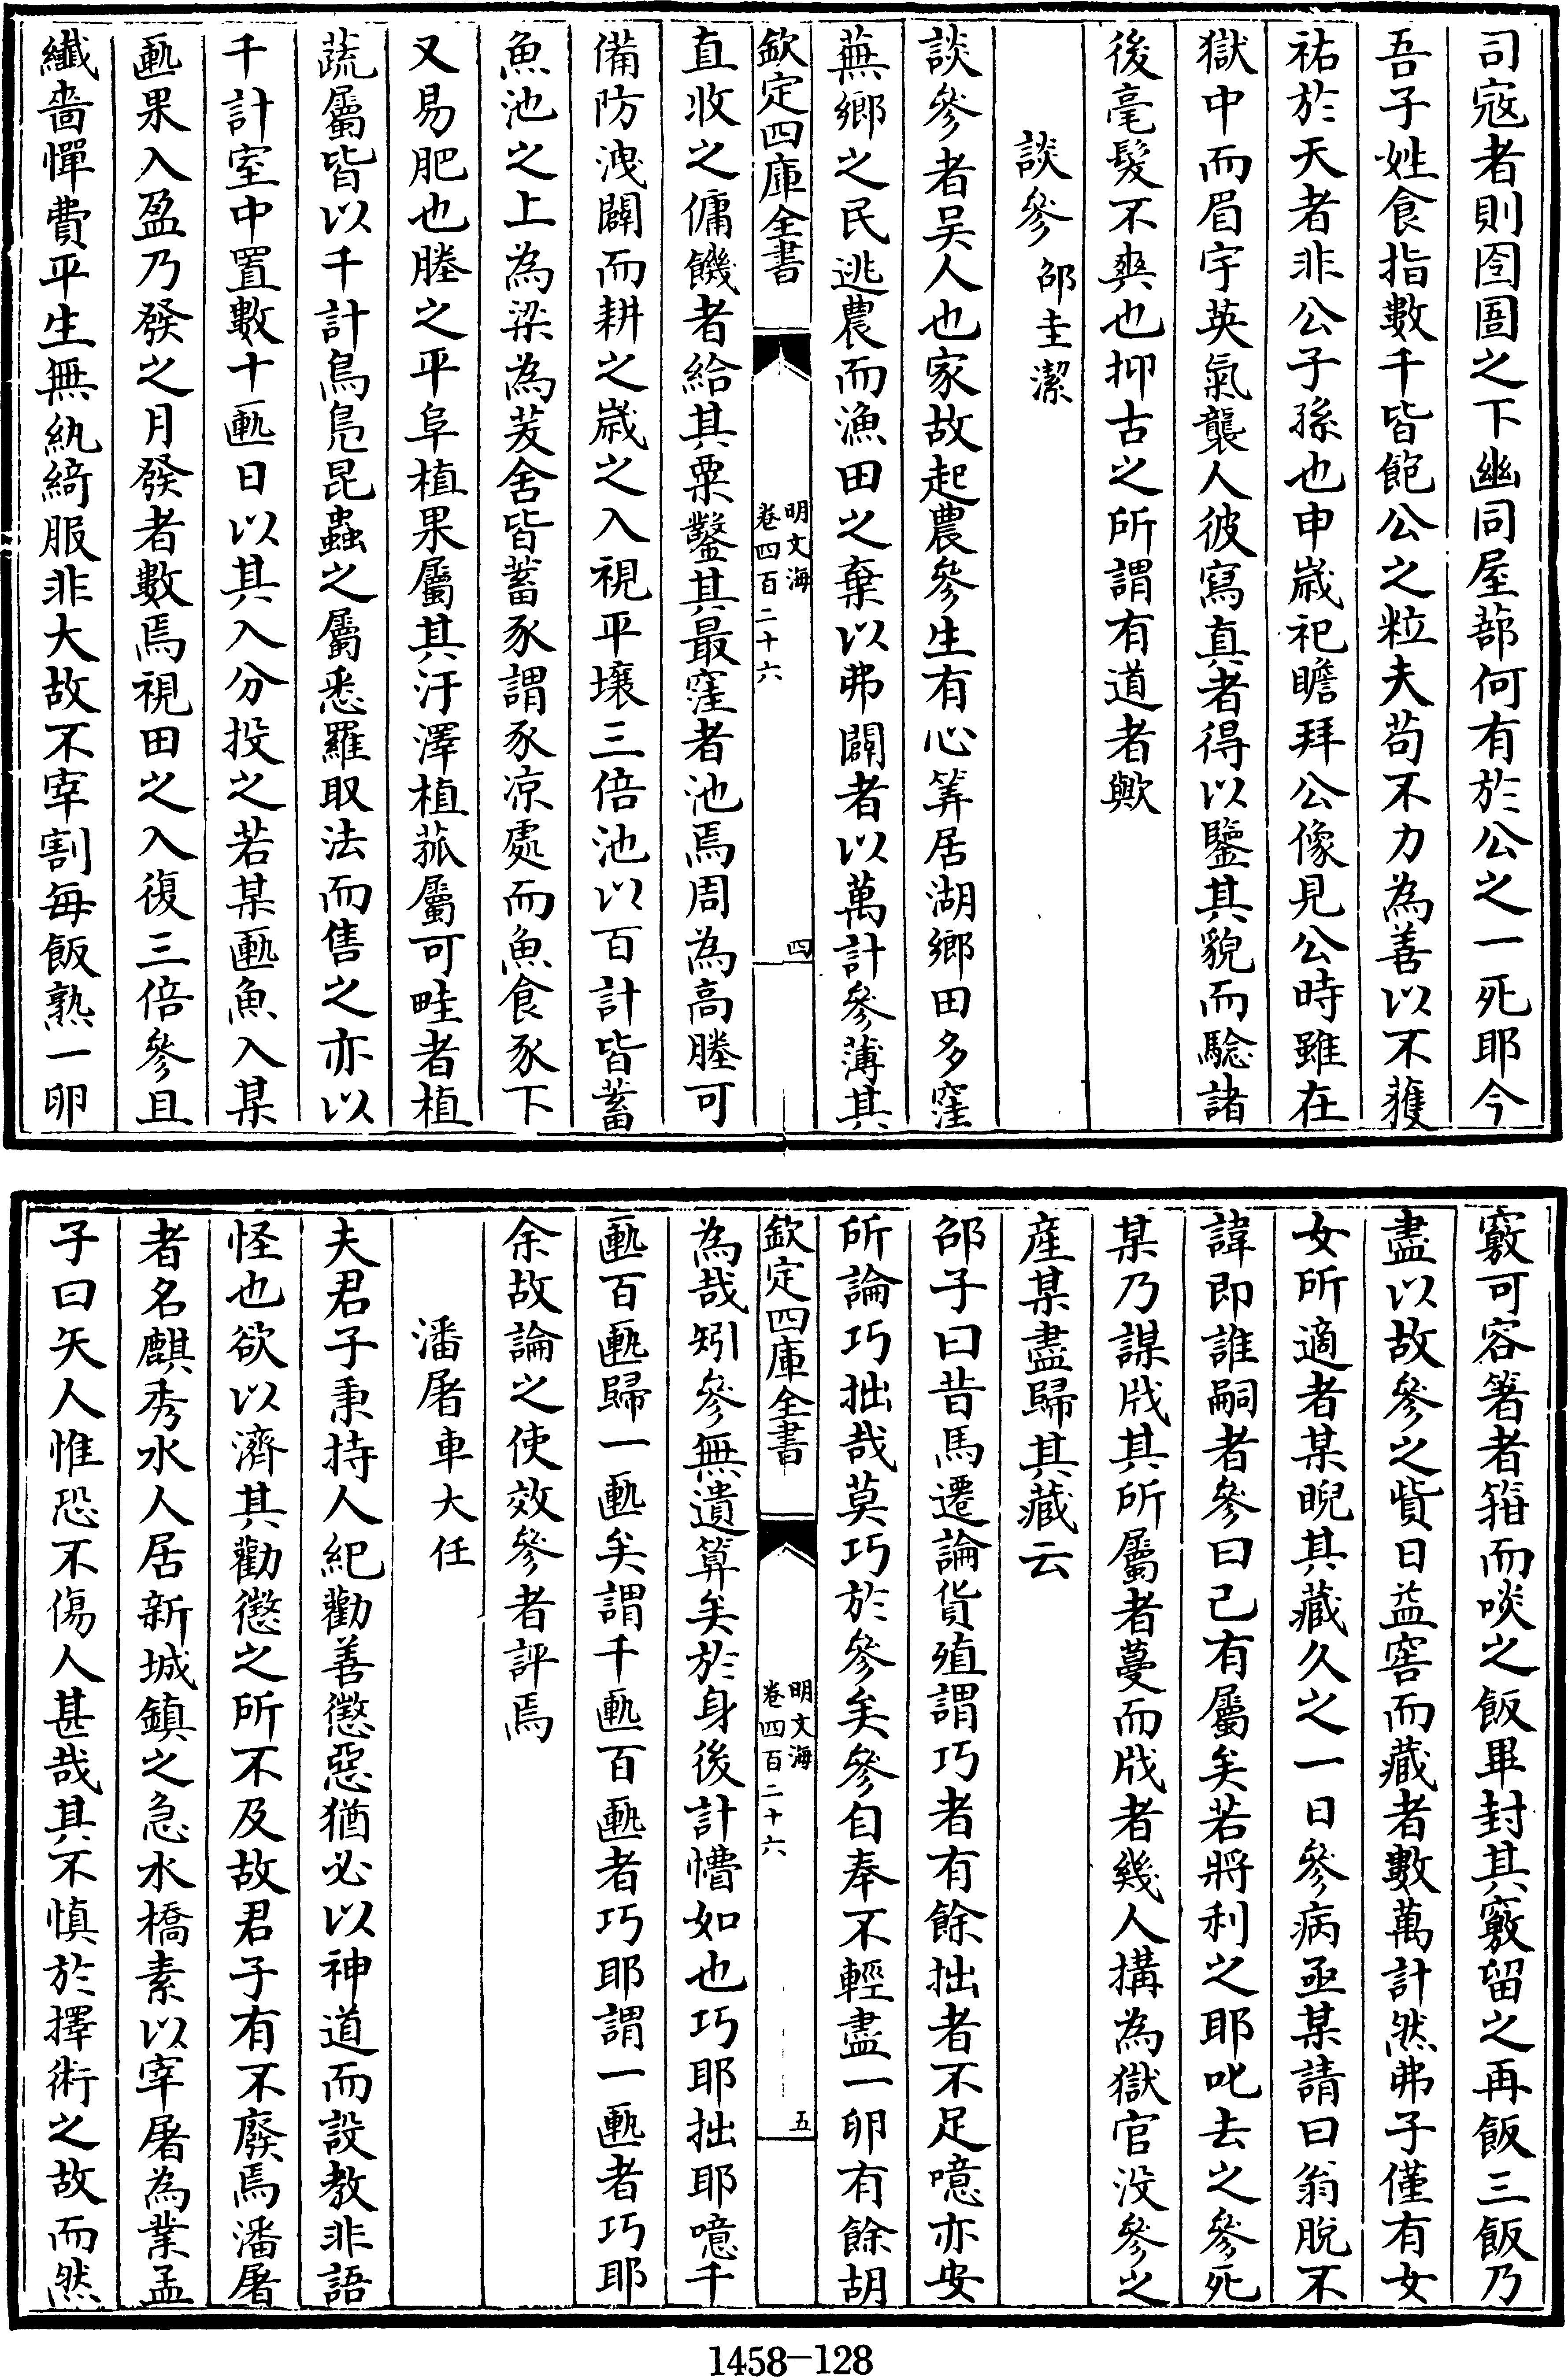 司寇者則囹圄之下幽同屋蔀何有於公之一死耶今
吾子姓食指數千皆飽公之粒夫苟不力為善以不獲
祐於天者非公子孫也申嵗祀瞻拜公像見公時雖在
獄中而眉宇英氣襲人彼寫真者得以鑒其貌而驗諸
後毫髮不爽也抑古之所謂有道者歟
談參 邵圭潔
談參者吴人也家故起農參生有心筭居湖鄉田多窪
蕪鄉之民逃農而漁田之棄以弗闢者以萬計參薄其
欽定四庫全書
明文海
卷四百二十六
四
直收之傭饑者給其粟鑿其最窪者池焉周為高塍可
備防洩闢而耕之嵗之入視平壤三倍池以百計皆蓄
魚池之上為梁為茇舍皆蓄豕謂豕凉處而魚食豕下
又易肥也塍之平阜植果屬其汙澤植菰屬可畦者植
蔬屬皆以千計鳥凫昆蟲之屬悉羅取法而售之亦以
千計室中置數十匭日以其入分投之若某匭魚入某
匭果入盈乃發之月發者數焉視田之入復三倍參且
纎嗇憚費平生無紈綺服非大故不宰割每飯熟一卵
竅可容箸者箝而啖之飯畢封其竅留之再飯三飯乃
盡以故參之貲日益窖而藏者數萬計然弗子僅有女
女所適者某睨其藏久之一日參病亟某請曰翁脱不
諱即誰嗣者參曰已有屬矣若將利之耶叱去之參死
某乃謀戕其所屬者蔓而戕者幾人搆為獄官没參之
産某盡歸其藏云
邵子曰昔馬遷論貨殖謂巧者有餘拙者不足噫亦安
所論巧拙哉莫巧於參矣參自奉不輕盡一卵有餘胡
欽定四庫全書
明文海
卷四百二十六
五
為哉矧參無遺算矣於身後計懵如也巧耶拙耶噫千
匭百匭歸一匭矣謂千匭百匭者巧耶謂一匭者巧耶
余故論之使效參者評焉
潘屠車大任
夫君子秉持人紀勸善懲惡猶必以神道而設教非語
怪也欲以濟其勸懲之所不及故君子有不廢焉潘屠
者名麒秀水人居新城鎮之急水橋素以宰屠為業孟
子曰矢人惟恐不傷人甚哉其不慎於擇術之故而然
1458-128